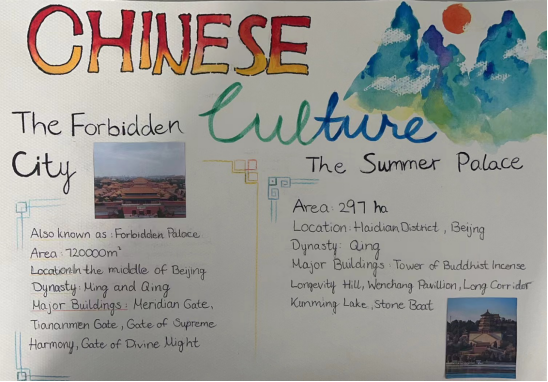 CHINESE
Culture
The Forbidden
City
Also known as : Forbidden Palace
Area : 720000m²
Location:In the middle of Beijing
Dynasty : Ming and Qing
Major Buildings : Meridian Gate,
Tiananmen Gate, Gate of Supreme
Harmony, Gate of Divine Might
The Summer Palace
Area : 297 ha
Location : Haidian District, Beijng
Dynasty : Qing
Major Buildings : Tower of Buddhist Incense
Longevity Hill, Wenchang Pavillion, Long Corridor
Kunming Lake, Stone Boat